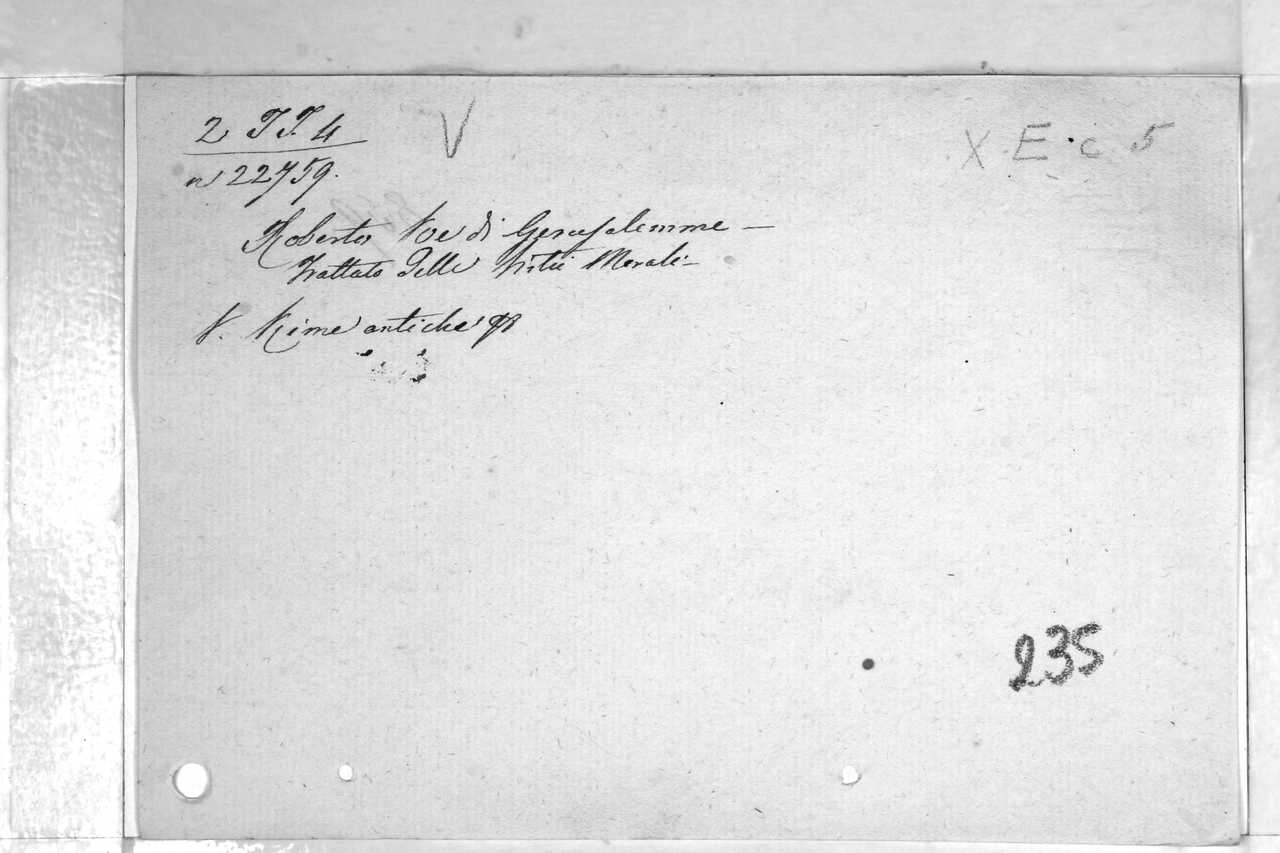 2 TT. 4
V
X E. c 5
n 22759.
Roberto Re di Gerusalemme —
Trattato delle Virtù Morali —
V. Rime antiche
235